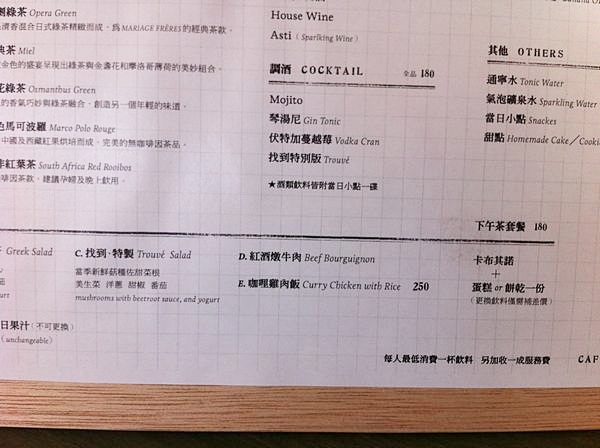 綠茶 Opera Green
清香混合日式綠茶精緻而成，為 MARIAGE FRÈRES 的經典茶款。
典茶 Miel
金色的盛宴呈現出綠茶與金盞花和摩洛哥薄荷的美妙組合。
花綠茶 Osmanthus Green
的香氣巧妙與綠茶融合，創造另一個年輕的味道。
色馬可波羅 Marco Polo Rouge
中國及西藏紅果烘培而成，完美的無咖啡因茶品。
非紅葉茶 South Africa Red Rooibos
啡因茶款，建議孕婦及晚上飲用。
House Wine
Asti （Sparlking Wine）
調酒 COCKTAIL 全品 180
Mojito
琴湯尼 Gin Tonic
伏特加蔓越莓 Vodka Cran
找到特別版 Trouvé
★酒類飲料皆附當日小點一碟
其他 OTHERS
通寧水 Tonic Water
氣泡礦泉水 Sparkling Water
當日小點 Snackes
甜點 Homemade Cake／Cooki
下午茶套餐 180
卡布其諾
＋
蛋糕 or 餅乾一份
（更換飲料僅需補差價）
Greek Salad
C. 找到·特製 Trouvé Salad
當季新鮮菇種佐甜菜根
美生菜 洋蔥 甜椒 番茄
mushrooms with beetroot sauce, and yogurt
D. 紅酒燉牛肉 Beef Bourguignon
E. 咖哩雞肉飯 Curry Chicken with Rice 250
日果汁（不可更換）
（unchangeable）
每人最低消費一杯飲料 另加收一成服務費
CAF